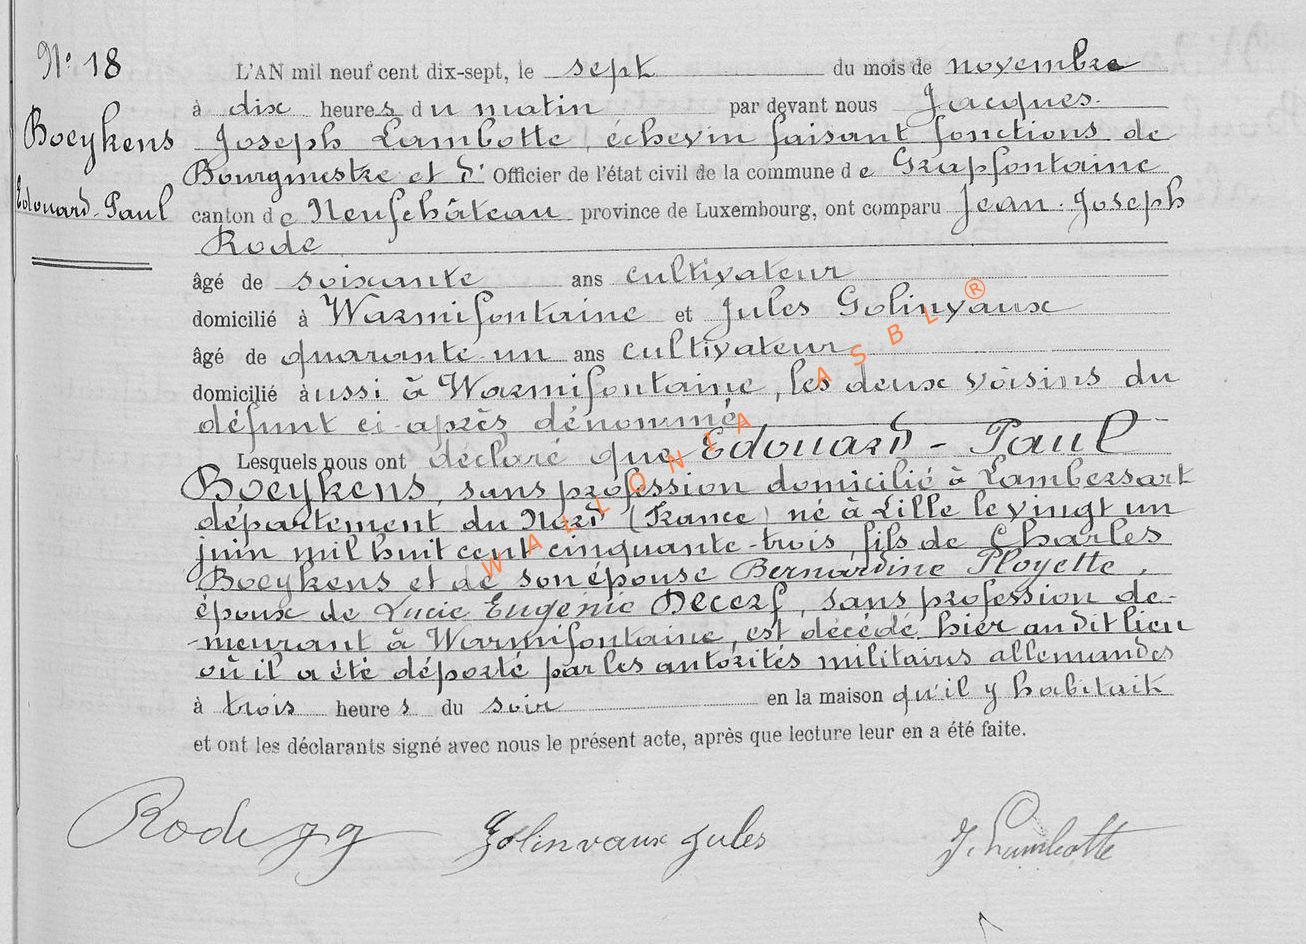 N° 18
L'AN mil neuf cent dix-sept, le sept du mois de novembre
à dix heures du matin par devant nous Jacques
Boeykens
Joseph Lambotte, échevin faisant fonctions de
Bourgmestre et d' Officier de l'état civil de la commune de Grapfontaine
Edouard-Paul
canton de Neufchâteau province de Luxembourg, ont comparu Jean-Joseph
Rode
âgé de soixante ans cultivateur
domicilié à Warmifontaine et Jules Golinvaux
âgé de quarante-un ans cultivateur
domicilié aussi à Warmifontaine, les deux voisins du
défunt ci-après dénommé
Lesquels nous ont déclaré que Edouard-Paul
Boeykens, sans profession domicilié à Lambersart
département du Nord (France) né à Lille le vingt un
juin mil huit cent cinquante-trois, fils de Charles
Boeykens et de son épouse Bernardine Ployette,
époux de Lucie Eugénie Decerf, sans profession de-
-meurant à Warmifontaine, est décédé hier au dit lieu
où il a été déporté par les autorités militaires allemandes
à trois heures du soir en la maison qu'il y habitait
et ont les déclarants signé avec nous le présent acte, après que lecture leur en a été faite.
Rode jj Golinvaux Jules J. Lambotte
WALLONIA ASBL ®